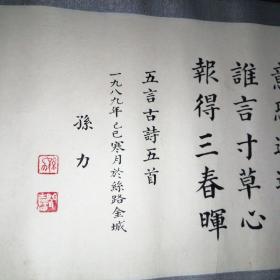 誰言寸草心
報得三春暉
五言古詩五首
一九八九年己巳寒月於絲路金城
孫力